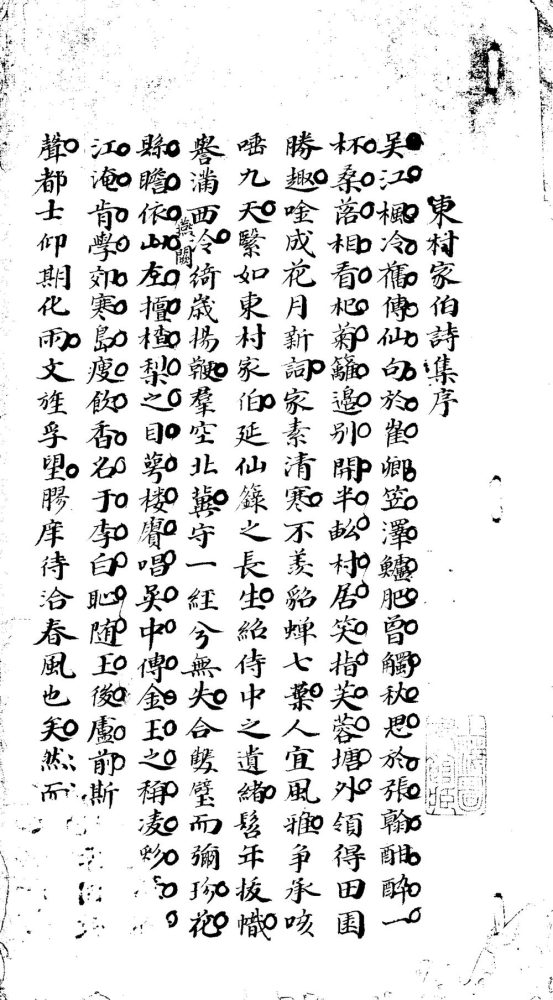 東村家伯詩集序
吳江楓冷舊傳仙句於崔卿笠澤鱸肥曾觸秋思於張翰酣醉一
杯桑落相看杞菊籬邊別開半畝村居笑指芙蓉塘外領得田園
勝趣唫成花月新詞家素清寒不羨貂蟬七葉人宜風雅爭承咳
唾九天繄如東村家伯延仙籙之長生紹侍中之遺緒髫年拔幟
譽滿西泠綺歲揚鞭羣空北冀守一經兮無失合雙璧而彌珍花
縣瞻依山左擅楂梨之目萼樓賡唱吳中傳金玉之稱凌
燕闕
江淹肯學郊寒島瘦飲香名于李白恥隨王後盧前斯
聲都士仰期化雨文旌孚望膠庠待洽春風也矣然而